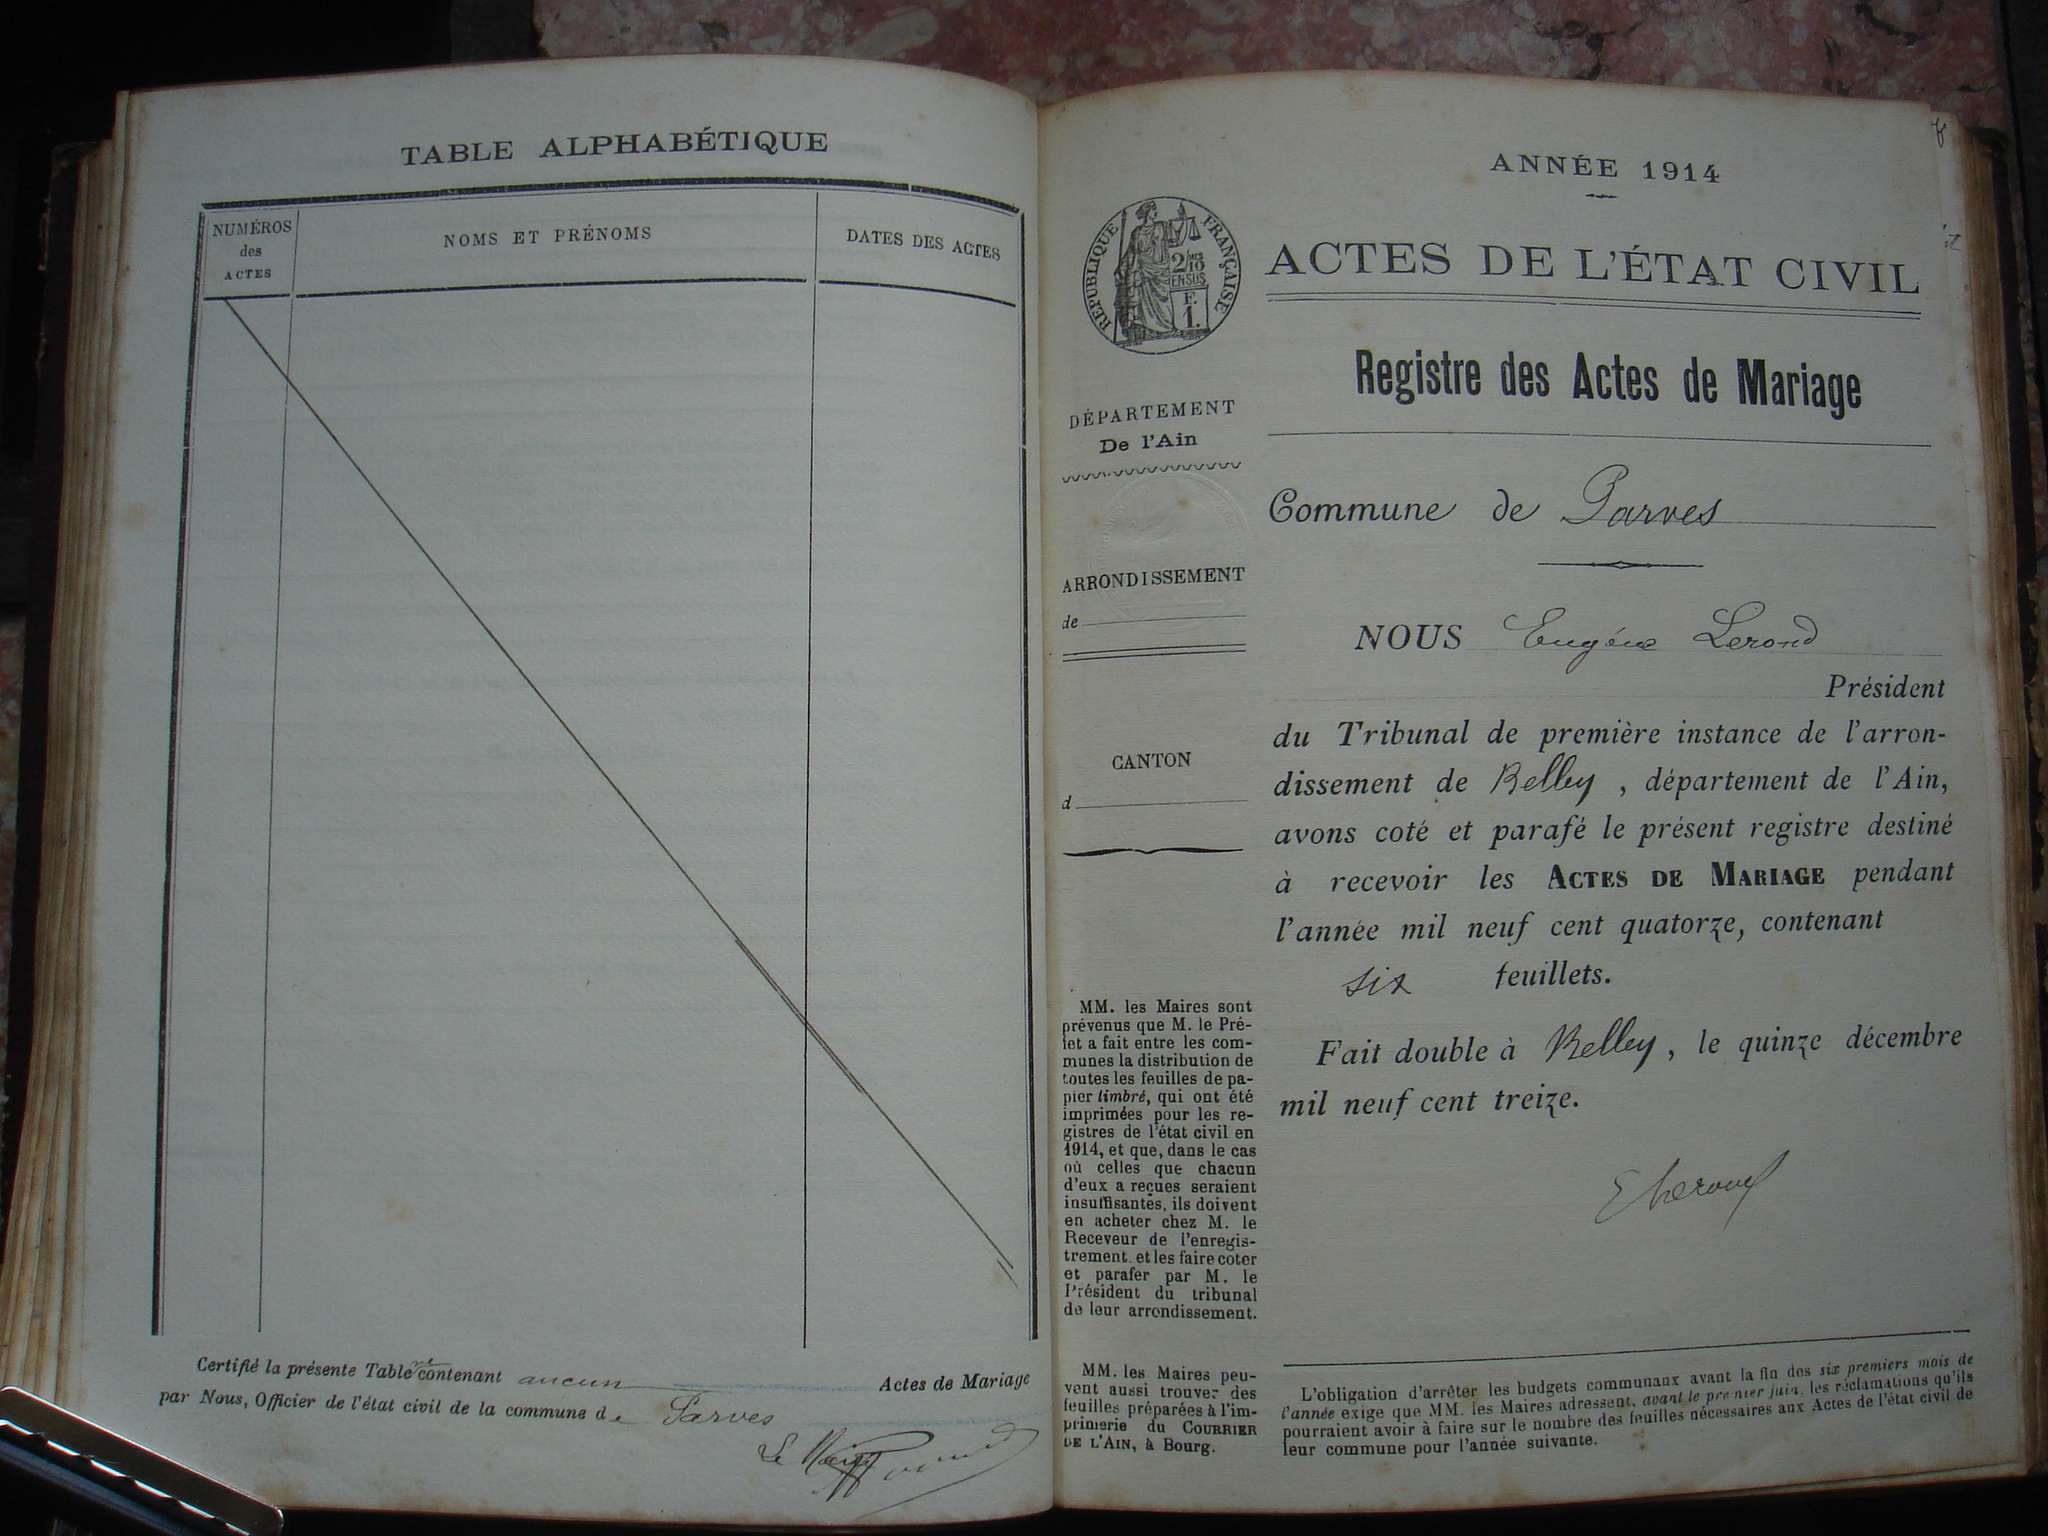 TABLE ALPHABÉTIQUE
NUMÉROS
des
ACTES
NOMS ET PRÉNOMS
DATES DES ACTES
Certifié la présente Table ne contenant aucun Actes de Mariage
par Nous, Officier de l'état civil de la commune de Parves
Le Maire
ANNÉE 1914
RÉPUBLIQUE FRANÇAISE
2/10
EN SUS
F.
1.
DÉPARTEMENT
De l'Ain
ARRONDISSEMENT
de
CANTON
d
MM. les Maires sont
prévenus que M. le Pré-
fet a fait entre les com-
munes la distribution de
toutes les feuilles de pa-
pier timbré, qui ont été
imprimées pour les re-
gistres de l'état civil en
1914, et que, dans le cas
où celles que chacun
d'eux a reçues seraient
insuffisantes, ils doivent
en acheter chez M. le
Receveur de l'enregis-
trement et les faire coter
et parafer par M. le
Président du tribunal
de leur arrondissement.
MM. les Maires peu-
vent aussi trouver des
feuilles préparées à l'im-
primerie du COURRIER
DE L'AIN, à Bourg.
ACTES DE L'ÉTAT CIVIL
Registre des Actes de Mariage
Commune de Parves
NOUS Eugène Lerond
Président
du Tribunal de première instance de l'arron-
dissement de Belley, département de l'Ain,
avons coté et parafé le présent registre destiné
à recevoir les ACTES DE MARIAGE pendant
l'année mil neuf cent quatorze, contenant
six feuillets.
Fait double à Belley, le quinze décembre
mil neuf cent treize.
E Lerond
L'obligation d'arrêter les budgets communaux avant la fin des six premiers mois de
l'année exige que MM. les Maires adressent, avant le premier juin, les réclamations qu'ils
pourraient avoir à faire sur le nombre des feuilles nécessaires aux Actes de l'état civil de
leur commune pour l'année suivante.